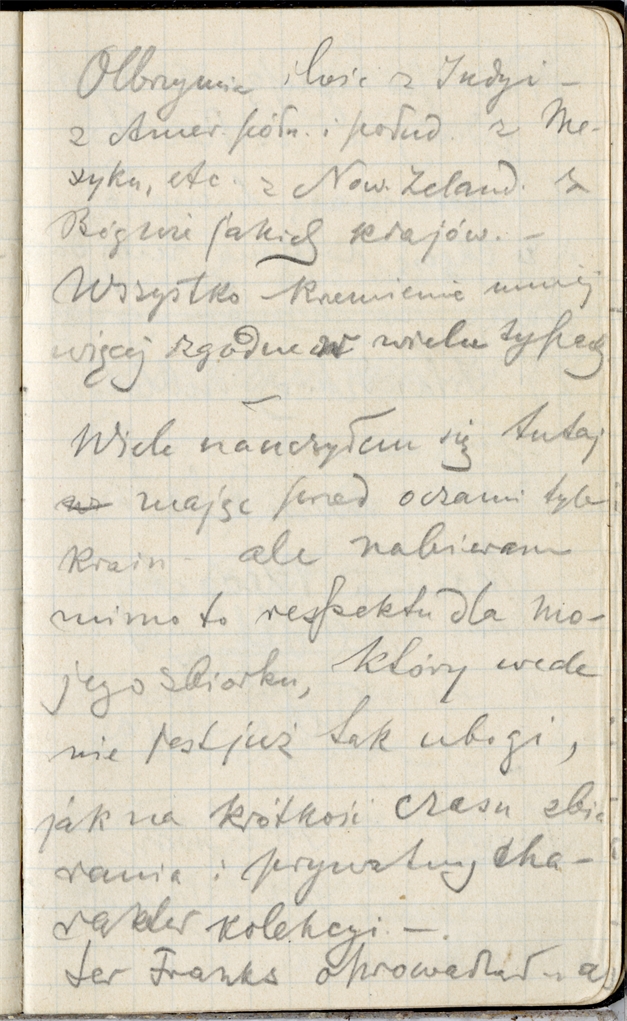 Olbrzymia ilość z Indyi –
z Amer. półn. i połud. z Me-
xyku, etc. z Now. Zeland. z
Bóg wie jakich krajów. –
Wszystko krzemienie mniej
więcej zgodne w wielu typach
Wiele nauczyłem się tutaj
mając przed oczami tyle
krain – ale nabieram
mimo to respektu dla mo-
jego zbiorku, który wcale
nie jest już tak ubogi,
jak na krótkość czasu zbie
rania i prywatny cha-
rakter kolekcyi –.
ter Franks oprowadzał na